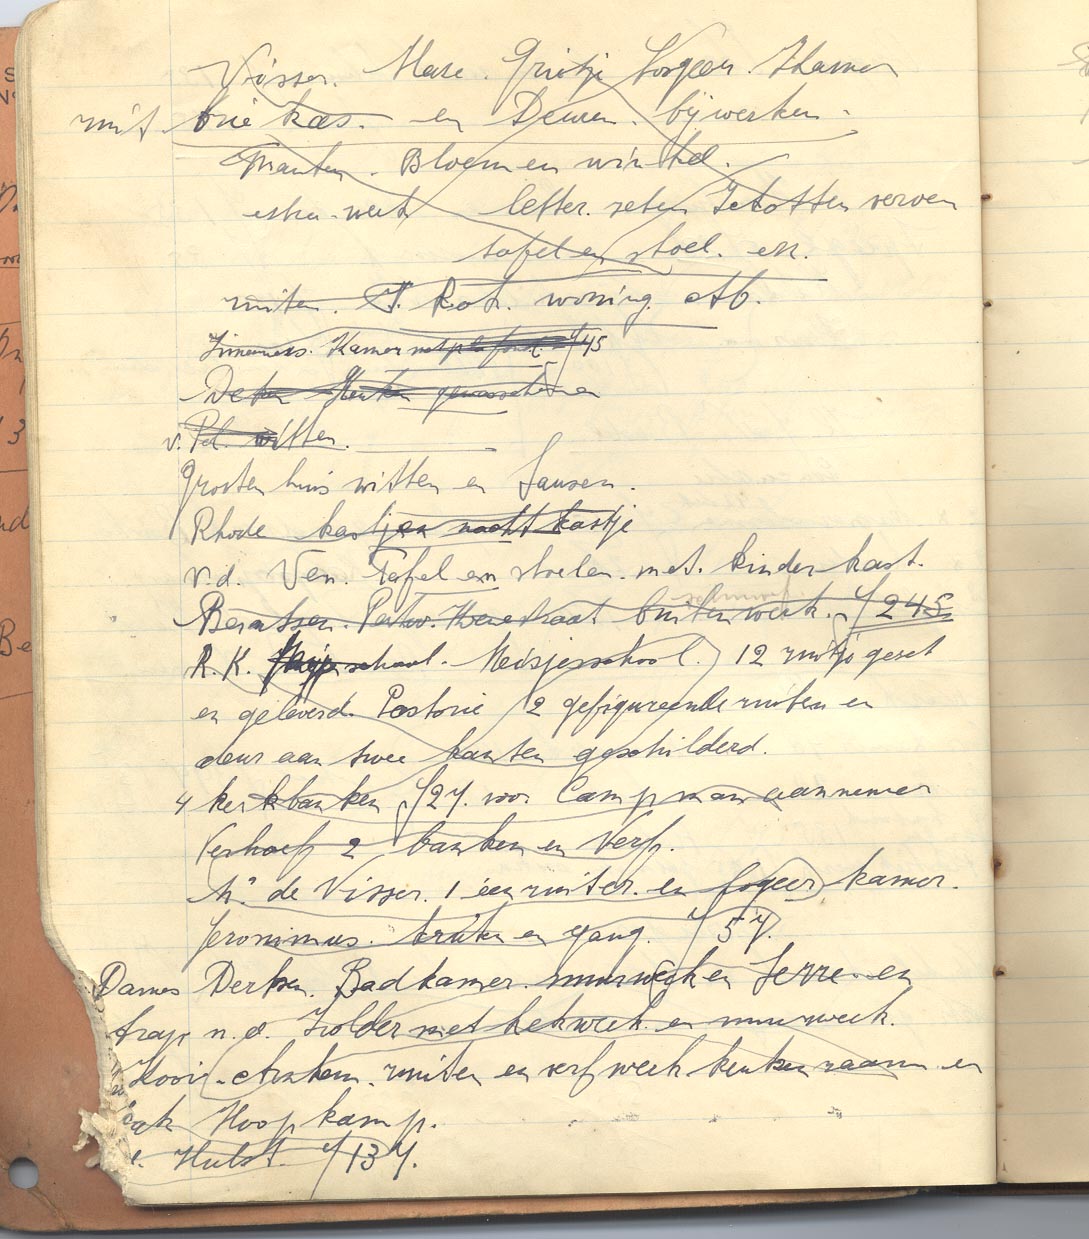 Visser. Mare. Grietje Logeer. Kamer
mit brie kas. en Deuren. bijwerken.
Manten. Bloemen winkel.
extra-werk letter. zeten verven
tafel en stoel. en.
ruiten. woning. Atb.
Kamer met plafond ƒ 45
Deken Keuken
v. Pel. witten.
Groten huis witten en Sausen.
Rhode kastje en nachtkastje
v.d. Ven. Tafel en stoelen. met. kinder kast.
Berntsen. buitenwerk. ƒ 245
R. K. school. Meisjesschool. 12 ruitjes gezet
en geleverd. Pastorie 2 gefigureerde ruiten en
deur aan twee kanten geschilderd.
4 kerkbanken ƒ 27. voor Campman aannemer
Verhoef 2 banken en Verf.
de Visser. 1 één ruiter en logeer kamer.
Jeronimus. keuken en gang. ƒ 57.
Dames Derksen. Badkamer. muurwerk en Serre. en
trap n. d. Zolder met hekwerk. en muurwerk.
Kooi. Arnhem. ruiten en verfwerk keuken raam en
Hoopkamp.
Hulst. ƒ 137.